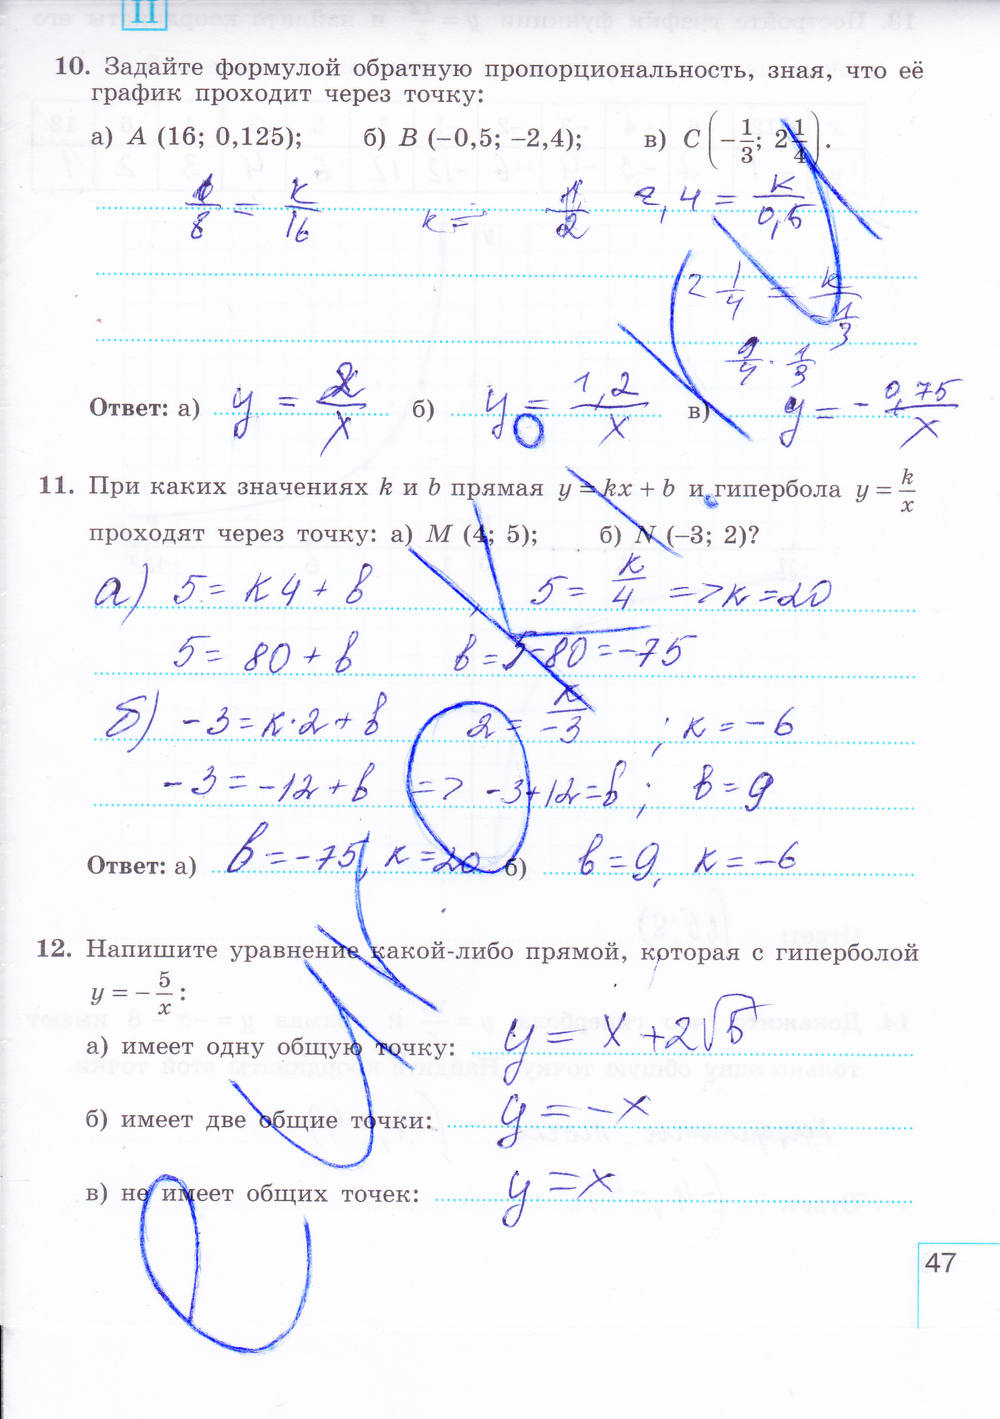 II
10. Задайте формулой обратную пропорциональность, зная, что её
график проходит через точку:
а) A (16; 0,125); б) B (–0,5; –2,4); в) C (–1/3; 2 1/4).
/8 = к/16 к = 2,4 = к/0,5
2 1/4 = к/1/3
9/4 · 1/3
Ответ: а) y = 2/x б) y = 1,2/x в) y = - 0,75/x
11. При каких значениях k и b прямая y = kx + b и гипербола y = k/x
проходят через точку: а) M (4; 5); б) N (–3; 2)?
а) 5 = к4 + в , 5 = к/4 => к = 20
5 = 80 + в в = 5-80 = -75
б) -3 = к·2 + в 2 = к/-3 ; к = -6
-3 = -12 + в => -3+12 = в ; в = 9
Ответ: а) в = -75, к = 20 б) в = 9, к = -6
12. Напишите уравнение какой-либо прямой, которая с гиперболой
y = –5/x :
а) имеет одну общую точку: y = x + 2√5
б) имеет две общие точки: y = -x
в) не имеет общих точек: y = x
47